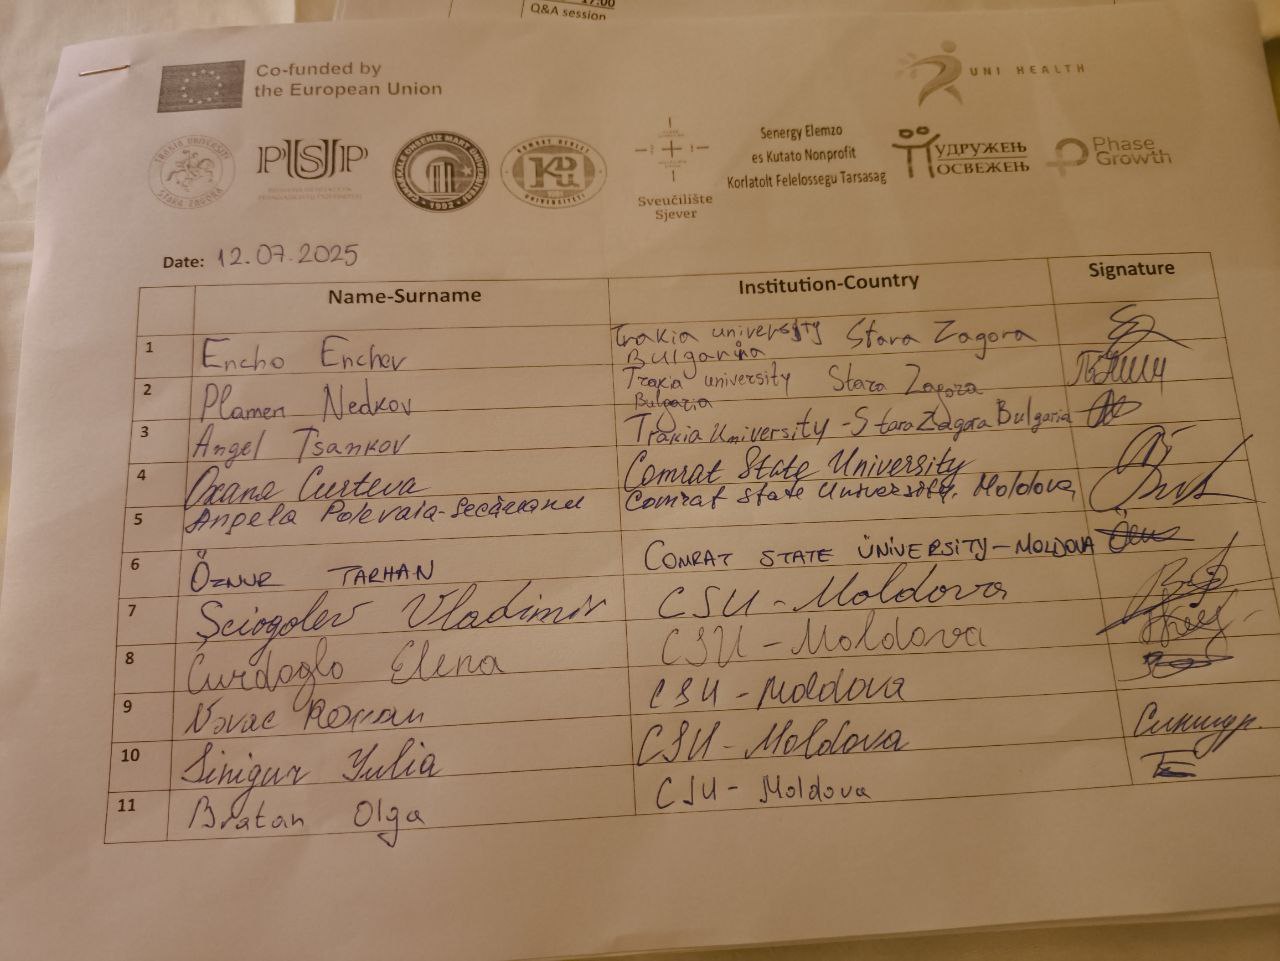 17:00
Q&A session
Co-funded by
the European Union
UNI HEALTH
TRAKIA UNIVERSITY
STARA ZAGORA
PUSJP
ÇANAKKALE ONSEKİZ MART ÜNİVERSİTESİ
1992
KOMRAT DEVLET
KDU
UNIVERSITETI
Sveučilište
Sjever
Senergy Elemzo
es Kutato Nonprofit
Korlatolt Felelossegu Tarsasag
УДРУЖЕЊ
ОСВЕЖЕЊ
Phase
Growth
Date: 12.07.2025
Name-Surname Institution-Country Signature
1 Encho Enchev Trakia university Stara Zagora
Bulgaria
2 Plamen Nedkov Trakia university Stara Zagora
Bulgaria
3 Angel Tsankov Trakia University - Stara Zagora Bulgaria
4 Oxana Curteva Comrat State University
5 Angela Polevaia- Comrat State University, Moldova
6 ÖZNUR TARHAN COMRAT STATE ÜNİVERSITY - MOLDOVA
7 Şciogolev Vladimir CSU - Moldova
8 Curdoglo Elena CSU - Moldova
9 Novac Roman CSU - Moldova
10 Sinigur Yulia CSU - Moldova Синигур
11 Bratan Olga CSU - Moldova